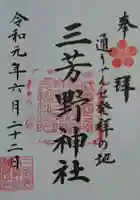 奉拝
通りゃんせ発祥の地
三芳野神社
令和元年六月二十二日